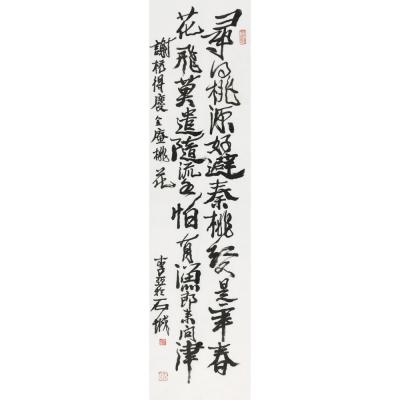 尋得桃源好避秦桃紅又是一年春
花飛莫遣隨流水怕有漁郎來問津
謝枋得慶全庵桃花
李亞於石城